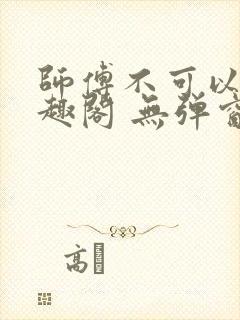 師傅不可以
趣閣 無彈窗
高